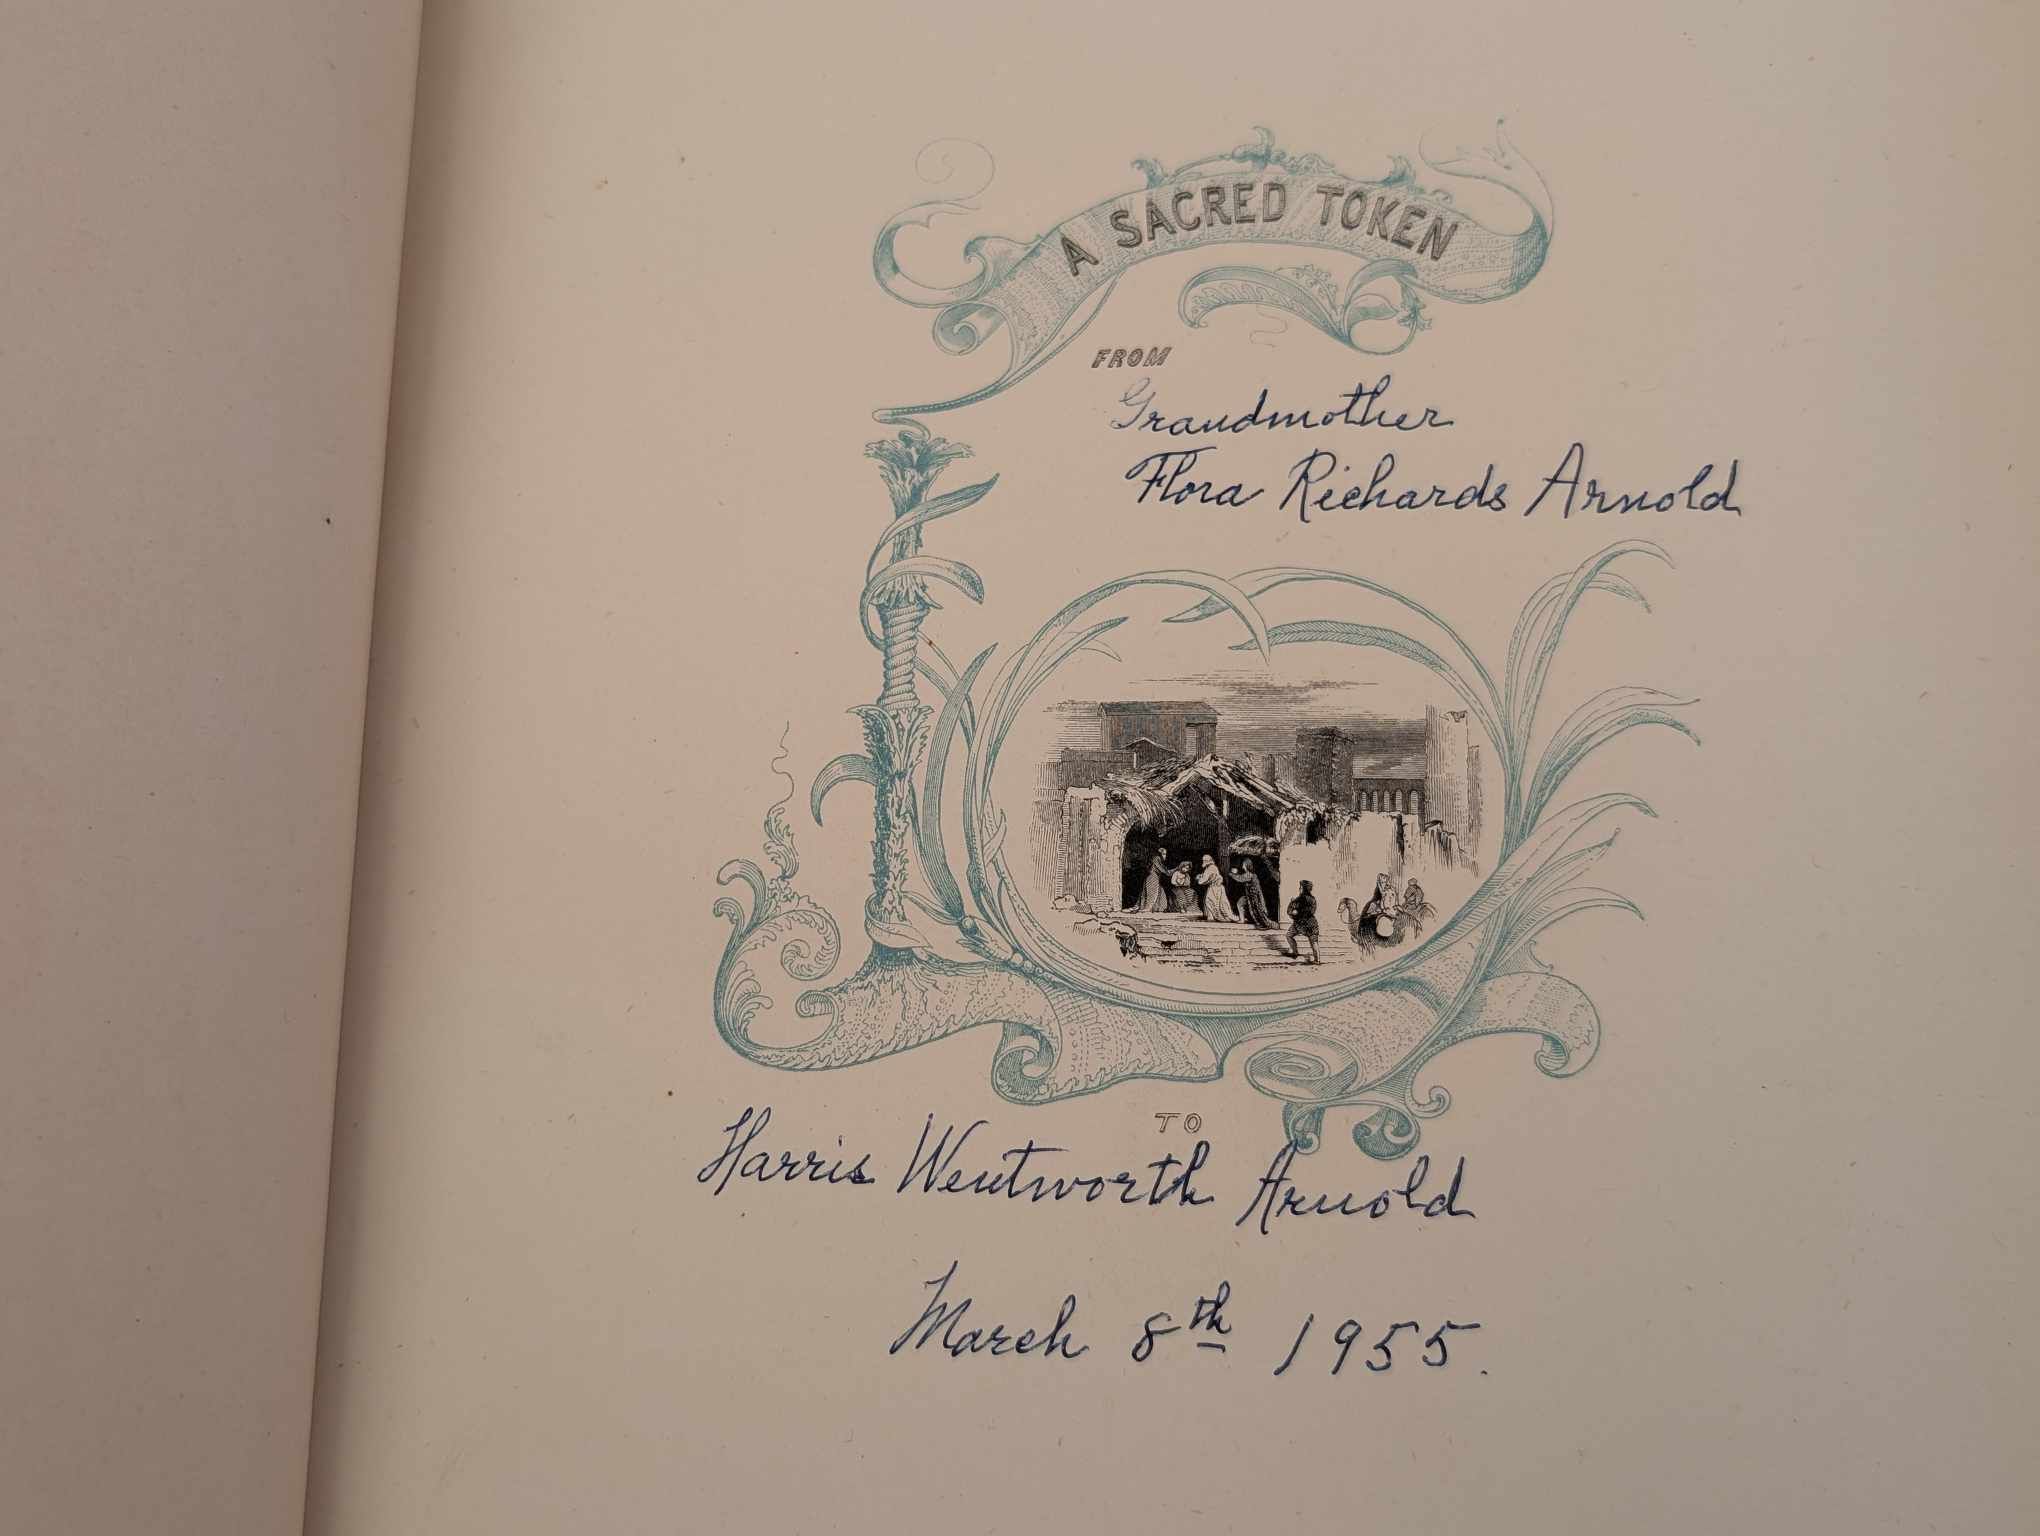 A SACRED TOKEN
FROM
Grandmother
Flora Richards Arnold
TO
Harris Wentworth Arnold
March 8th 1955.